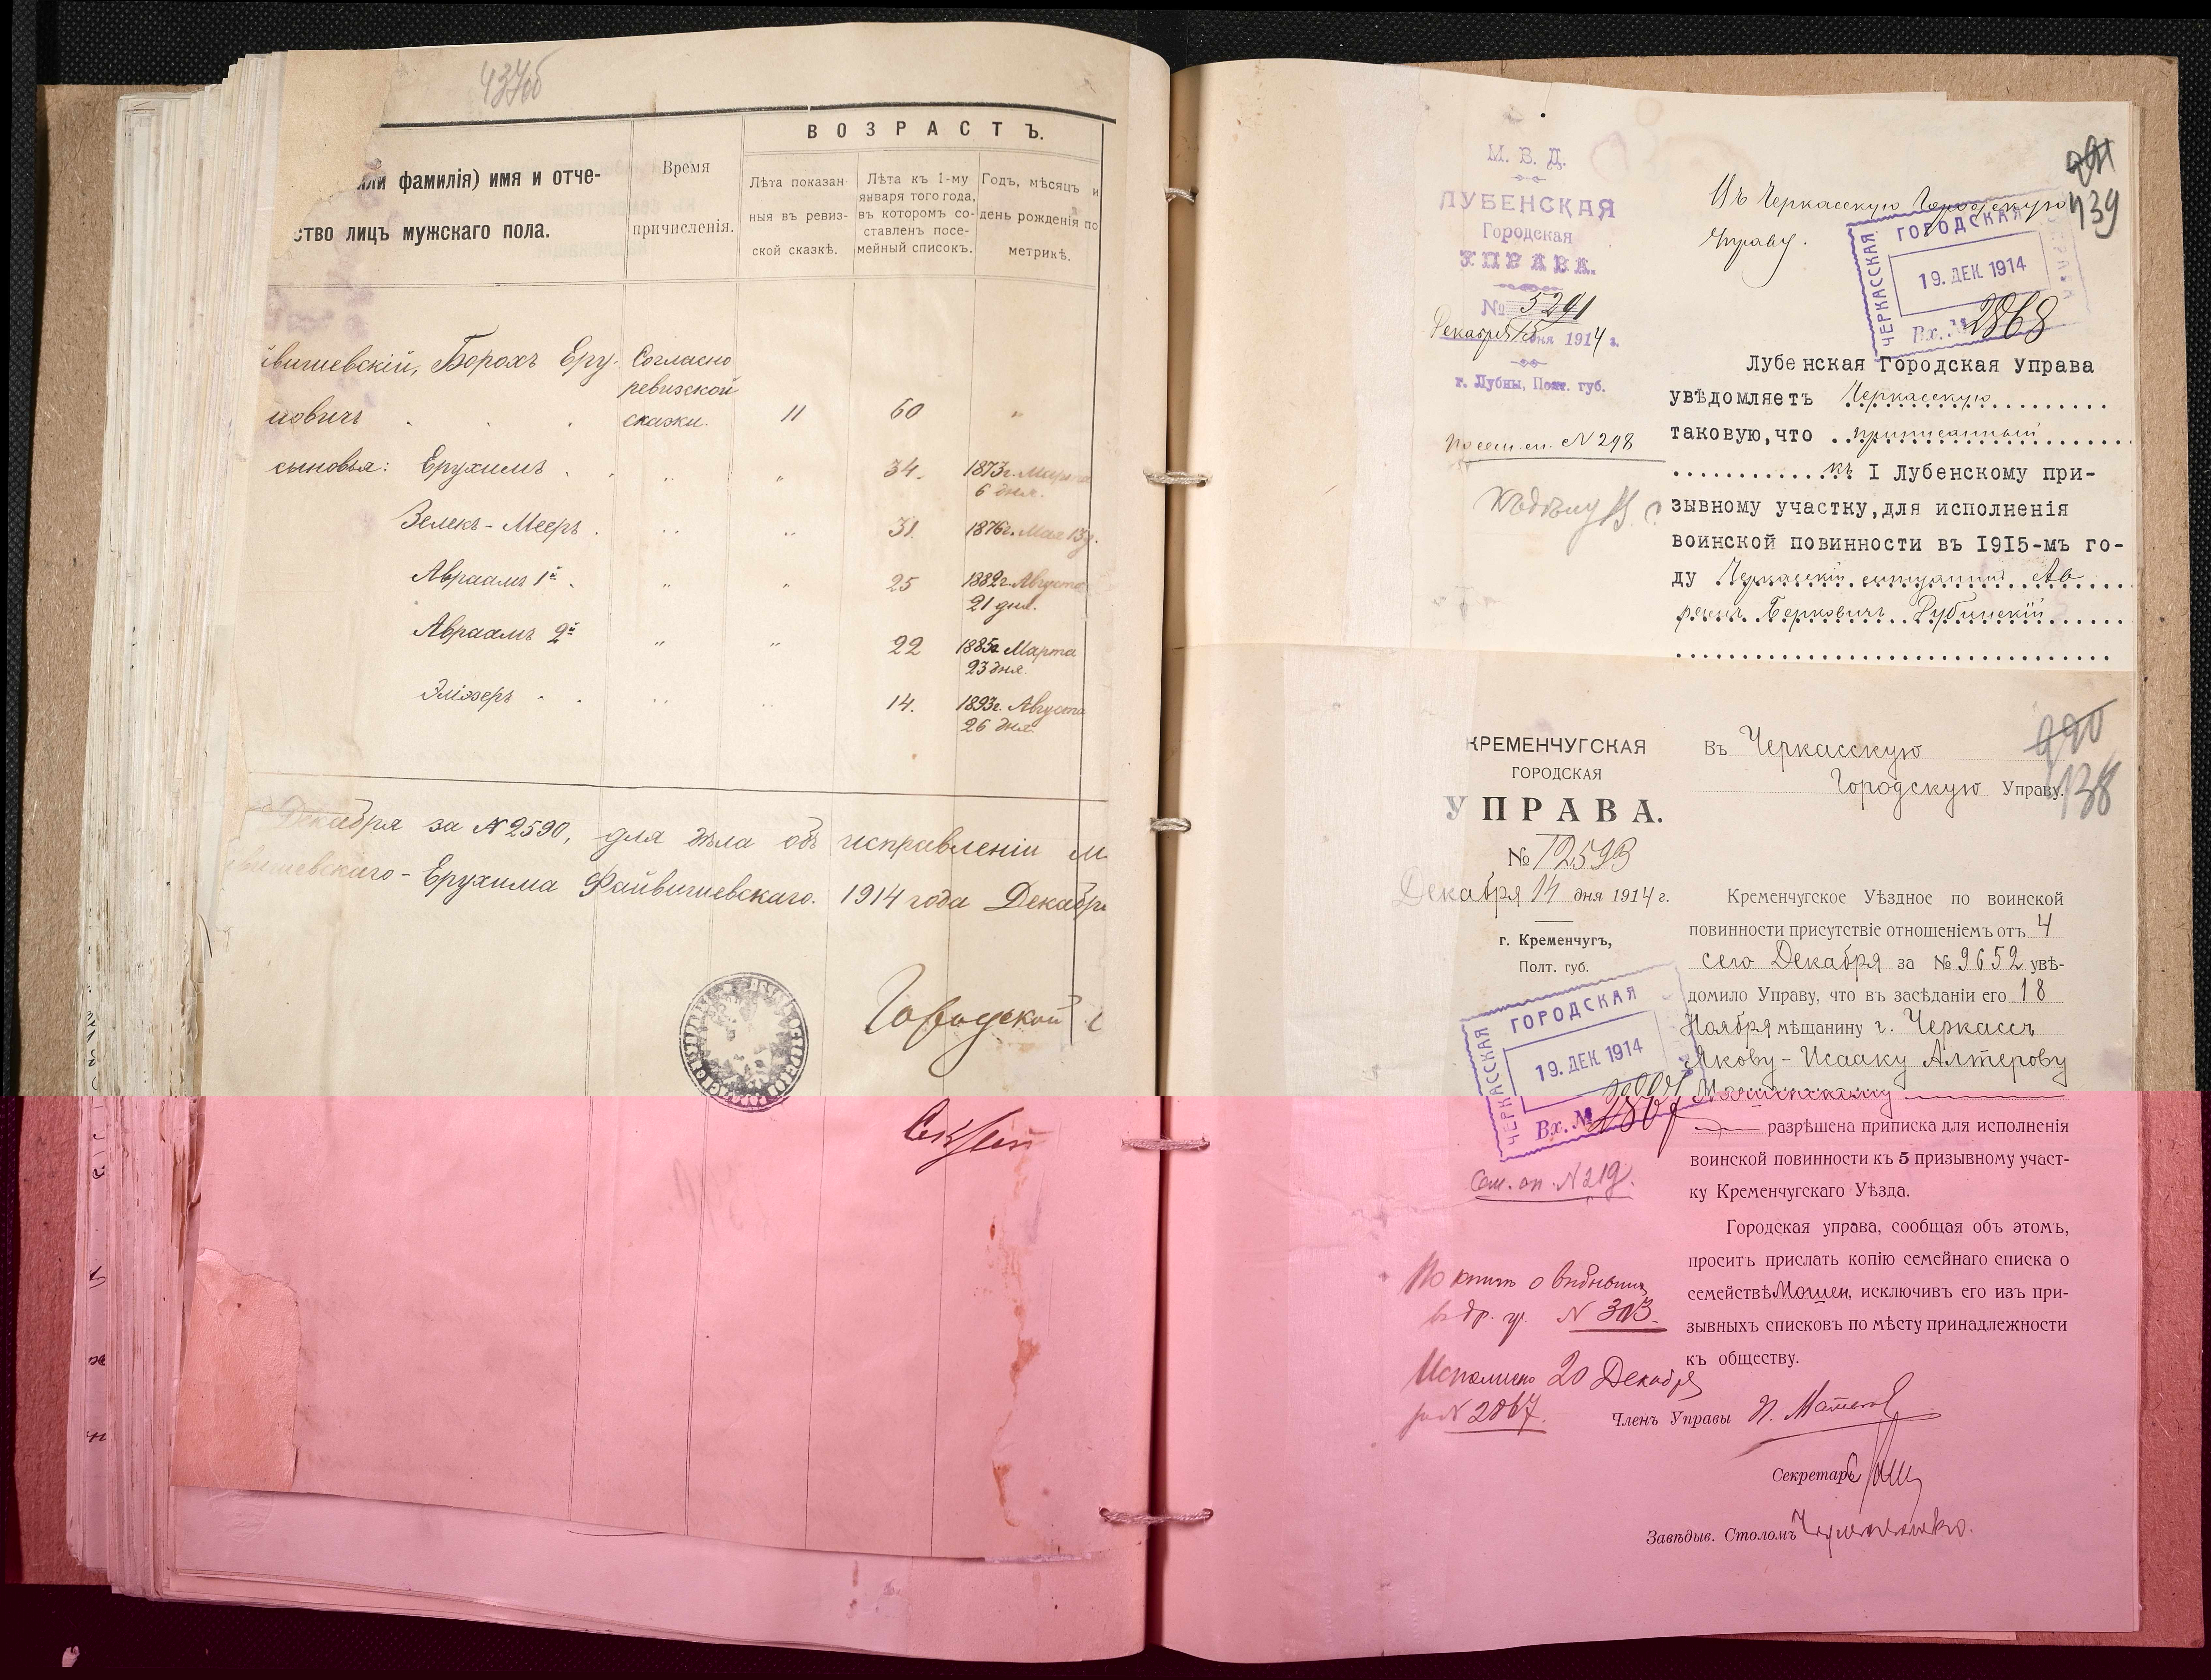 437об
ВОЗРАСТЪ.
или фамилія) имя и отче-
ство лицъ мужскаго пола.
Время
причисленія.
Лѣта показан-
ныя въ ревиз-
ской сказкѣ.
Лѣта къ 1-му
января того года,
въ которомъ со-
ставленъ посе-
мейный списокъ.
Годъ, мѣсяцъ и
день рожденія по
метрикѣ.
йвишевскій, Борохъ Еру-
Согласно
ревизской
мовичъ
сказки.
11
60
"
сыновья: Ерухимъ
"
"
34.
1873г. Марта
6 дня.
Зелекъ-Мееръ
"
"
31.
1876г. Мая 13д.
Авраамъ 1й
"
"
25
1882г. Августа
21 дня.
Авраамъ 2й
"
"
22
1885г Марта
23 дня.
Эліозеръ
"
"
14.
1893г. Августа
26 дня.
Декабря за №2590, для дѣла объ исправленіи м
вишевскаго-Ерухима Файвишевскаго. 1914 года Декабря
Городской С
М. В. Д.
ЛУБЕНСКАЯ
Городская
УПРАВА.
№ 5291
Декабря 15 дня 1914 г.
г. Лубны, Полт. губ.
По сем. сп. №298
Въ Черкасскую Городскую
Управу.
291
439
ЧЕРКАССКАЯ
ГОРОДСКАЯ
УПРАВА
19. ДЕК. 1914
Вх. № 2868
Лубенская Городская Управа
увѣдомляетъ Черкасскую
таковую, что приписанный
къ I Лубенскому при-
зывному участку, для исполненія
воинской повинности въ 1915-мъ го-
ду Черкасскій мѣщанинъ Аб
Берковичъ Рубинскій
КРЕМЕНЧУГСКАЯ
ГОРОДСКАЯ
УПРАВА.
№ 12593
Декабря 14 дня 1914 г.
г. Кременчугъ,
Полт. губ.
Въ Черкасскую
Городскую Управу.
290
438
Кременчугское Уѣздное по воинской
повинности присутствіе отношеніемъ отъ 4
сего Декабря за № 9652 увѣ-
домило Управу, что въ засѣданіи его 18
Ноября мѣщанину г. Черкассъ
Якову-Исааку Алтерову
Мошенскому
разрѣшена приписка для исполненія
воинской повинности къ 5 призывному участ-
ку Кременчугскаго Уѣзда.
Городская управа, сообщая объ этомъ,
проситъ прислать копію семейнаго списка о
семействѣ Мошен, исключивъ его изъ при-
зывныхъ списковъ по мѣсту принадлежности
къ обществу.
ЧЕРКАССКАЯ
ГОРОДСКАЯ
19. ДЕК. 1914
Вх. №
Сем. сп. №219.
По книгѣ о выбывшихъ
въ др. у. № 303.
Исполнено 20 Декабря
за № 2867.
Членъ Управы
Секретарь
Завѣдыв. Столомъ